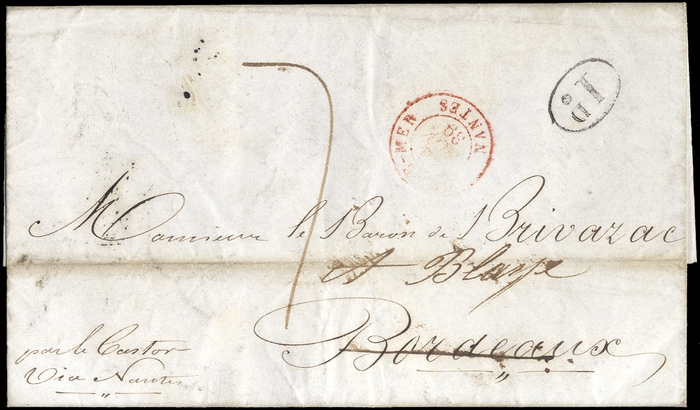 7
-MER
NANTES
39
I.D
Monsieur le Baron de Brivazac
A Blaye
Bordeaux
par le Castor
Via Nantes